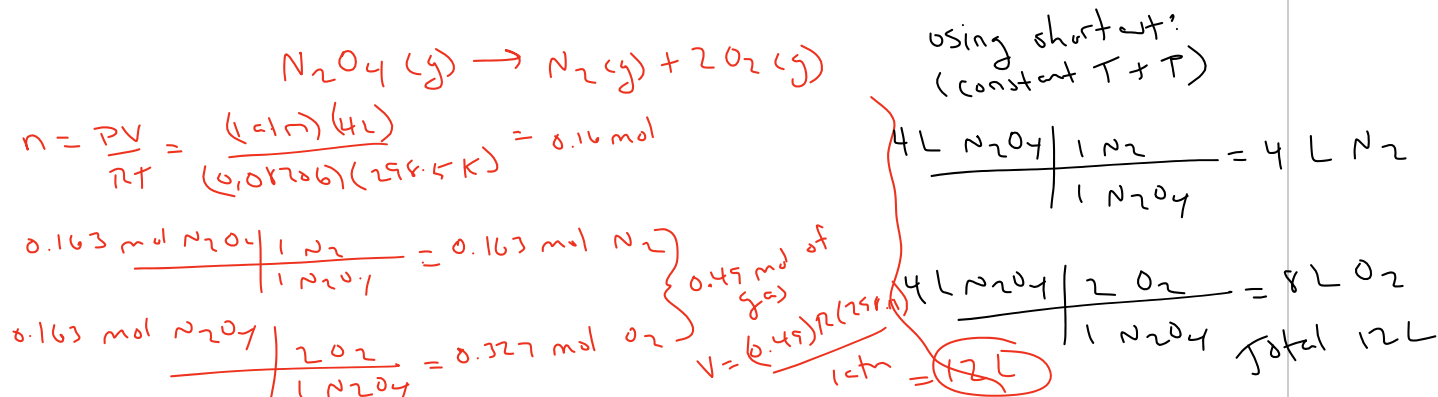 N₂O₄ (g) → N₂ (g) + 2 O₂ (g)
n = PV/RT = (1 atm)(4L)/(0.08206)(298.15 K) = 0.16 mol
0.163 mol N₂O₄ | 1 N₂ / 1 N₂O₄ = 0.163 mol N₂
0.163 mol N₂O₄ | 2 O₂ / 1 N₂O₄ = 0.327 mol O₂
0.49 mol of
gas
V = (0.49)R(298.15)/1 atm = 12 L
Using shortcut:
(constant T + P)
4 L N₂O₄ | 1 N₂ / 1 N₂O₄ = 4 L N₂
4 L N₂O₄ | 2 O₂ / 1 N₂O₄ = 8 L O₂
Total 12 L